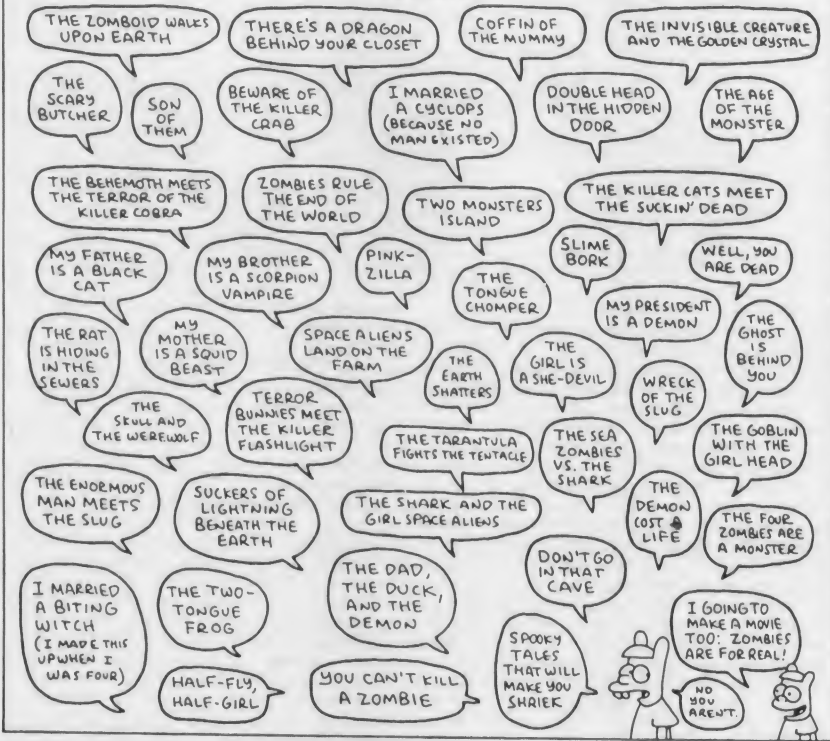 THE ZOMBOID WALKS
UPON EARTH
THERE'S A DRAGON
BEHIND YOUR CLOSET
COFFIN OF
THE MUMMY
THE INVISIBLE CREATURE
AND THE GOLDEN CRYSTAL
THE
SCARY
BUTCHER
SON
OF
THEM
BEWARE OF
THE KILLER
CRAB
I MARRIED
A CYCLOPS
(BECAUSE NO
MAN EXISTED)
DOUBLE HEAD
IN THE HIDDEN
DOOR
THE AGE
OF THE
MONSTER
THE BEHEMOTH MEETS
THE TERROR OF THE
KILLER COBRA
ZOMBIES RULE
THE END OF
THE WORLD
TWO MONSTERS
ISLAND
THE KILLER CATS MEET
THE SUCKIN' DEAD
MY FATHER
IS A BLACK
CAT
MY BROTHER
IS A SCORPION
VAMPIRE
PINK-
ZILLA
THE
TONGUE
CHOMPER
SLIME
BORK
WELL, YOU
ARE DEAD
MY PRESIDENT
IS A DEMON
THE RAT
IS HIDING
IN THE
SEWERS
MY
MOTHER
IS A SQUID
BEAST
SPACE ALIENS
LAND ON THE
FARM
THE
EARTH
SHATTERS
THE
GIRL IS
A SHE-DEVIL
WRECK
OF THE
SLUG
THE
GHOST
IS
BEHIND
YOU
THE
SKULL AND
THE WEREWOLF
TERROR
BUNNIES MEET
THE KILLER
FLASHLIGHT
THE TARANTULA
FIGHTS THE TENTACLE
THE SEA
ZOMBIES
VS. THE
SHARK
THE GOBLIN
WITH THE
GIRL HEAD
THE ENORMOUS
MAN MEETS
THE SLUG
SUCKERS OF
LIGHTNING
BENEATH THE
EARTH
THE SHARK AND THE
GIRL SPACE ALIENS
THE
DEMON
COST A
LIFE
THE FOUR
ZOMBIES ARE
A MONSTER
I MARRIED
A BITING
WITCH
(I MADE THIS
UP WHEN I
WAS FOUR)
THE TWO-
TONGUE
FROG
THE DAD,
THE DUCK,
AND THE
DEMON
DON'T GO
IN THAT
CAVE
HALF-FLY,
HALF-GIRL
YOU CAN'T KILL
A ZOMBIE
SPOOKY
TALES
THAT WILL
MAKE YOU
SHRIEK
I GOING TO
MAKE A MOVIE
TOO: ZOMBIES
ARE FOR REAL!
NO
YOU
AREN'T.